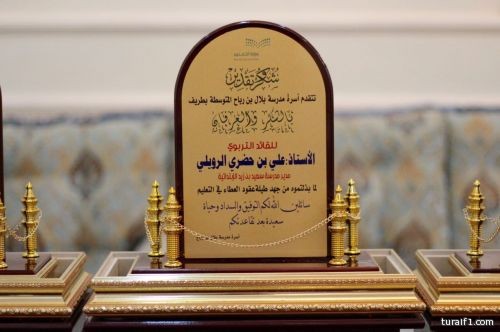 شكر وتقدير
تتقدم أسرة مدرسة بلال بن رباح المتوسطة بطريف
بالشكر والعرفان
للقائد التربوي
الأستاذ: علي بن حضري الرويلي
مدير مدرسة سعيد بن زيد الإبتدائية
لما بذلتموه من جهد طيلة عقود العطاء في التعليم
سائلين الله لكم التوفيق والسداد وحياة
سعيدة بعد تقاعدكم
أسرة مدرسة بلال بن رباح
turaif1.com